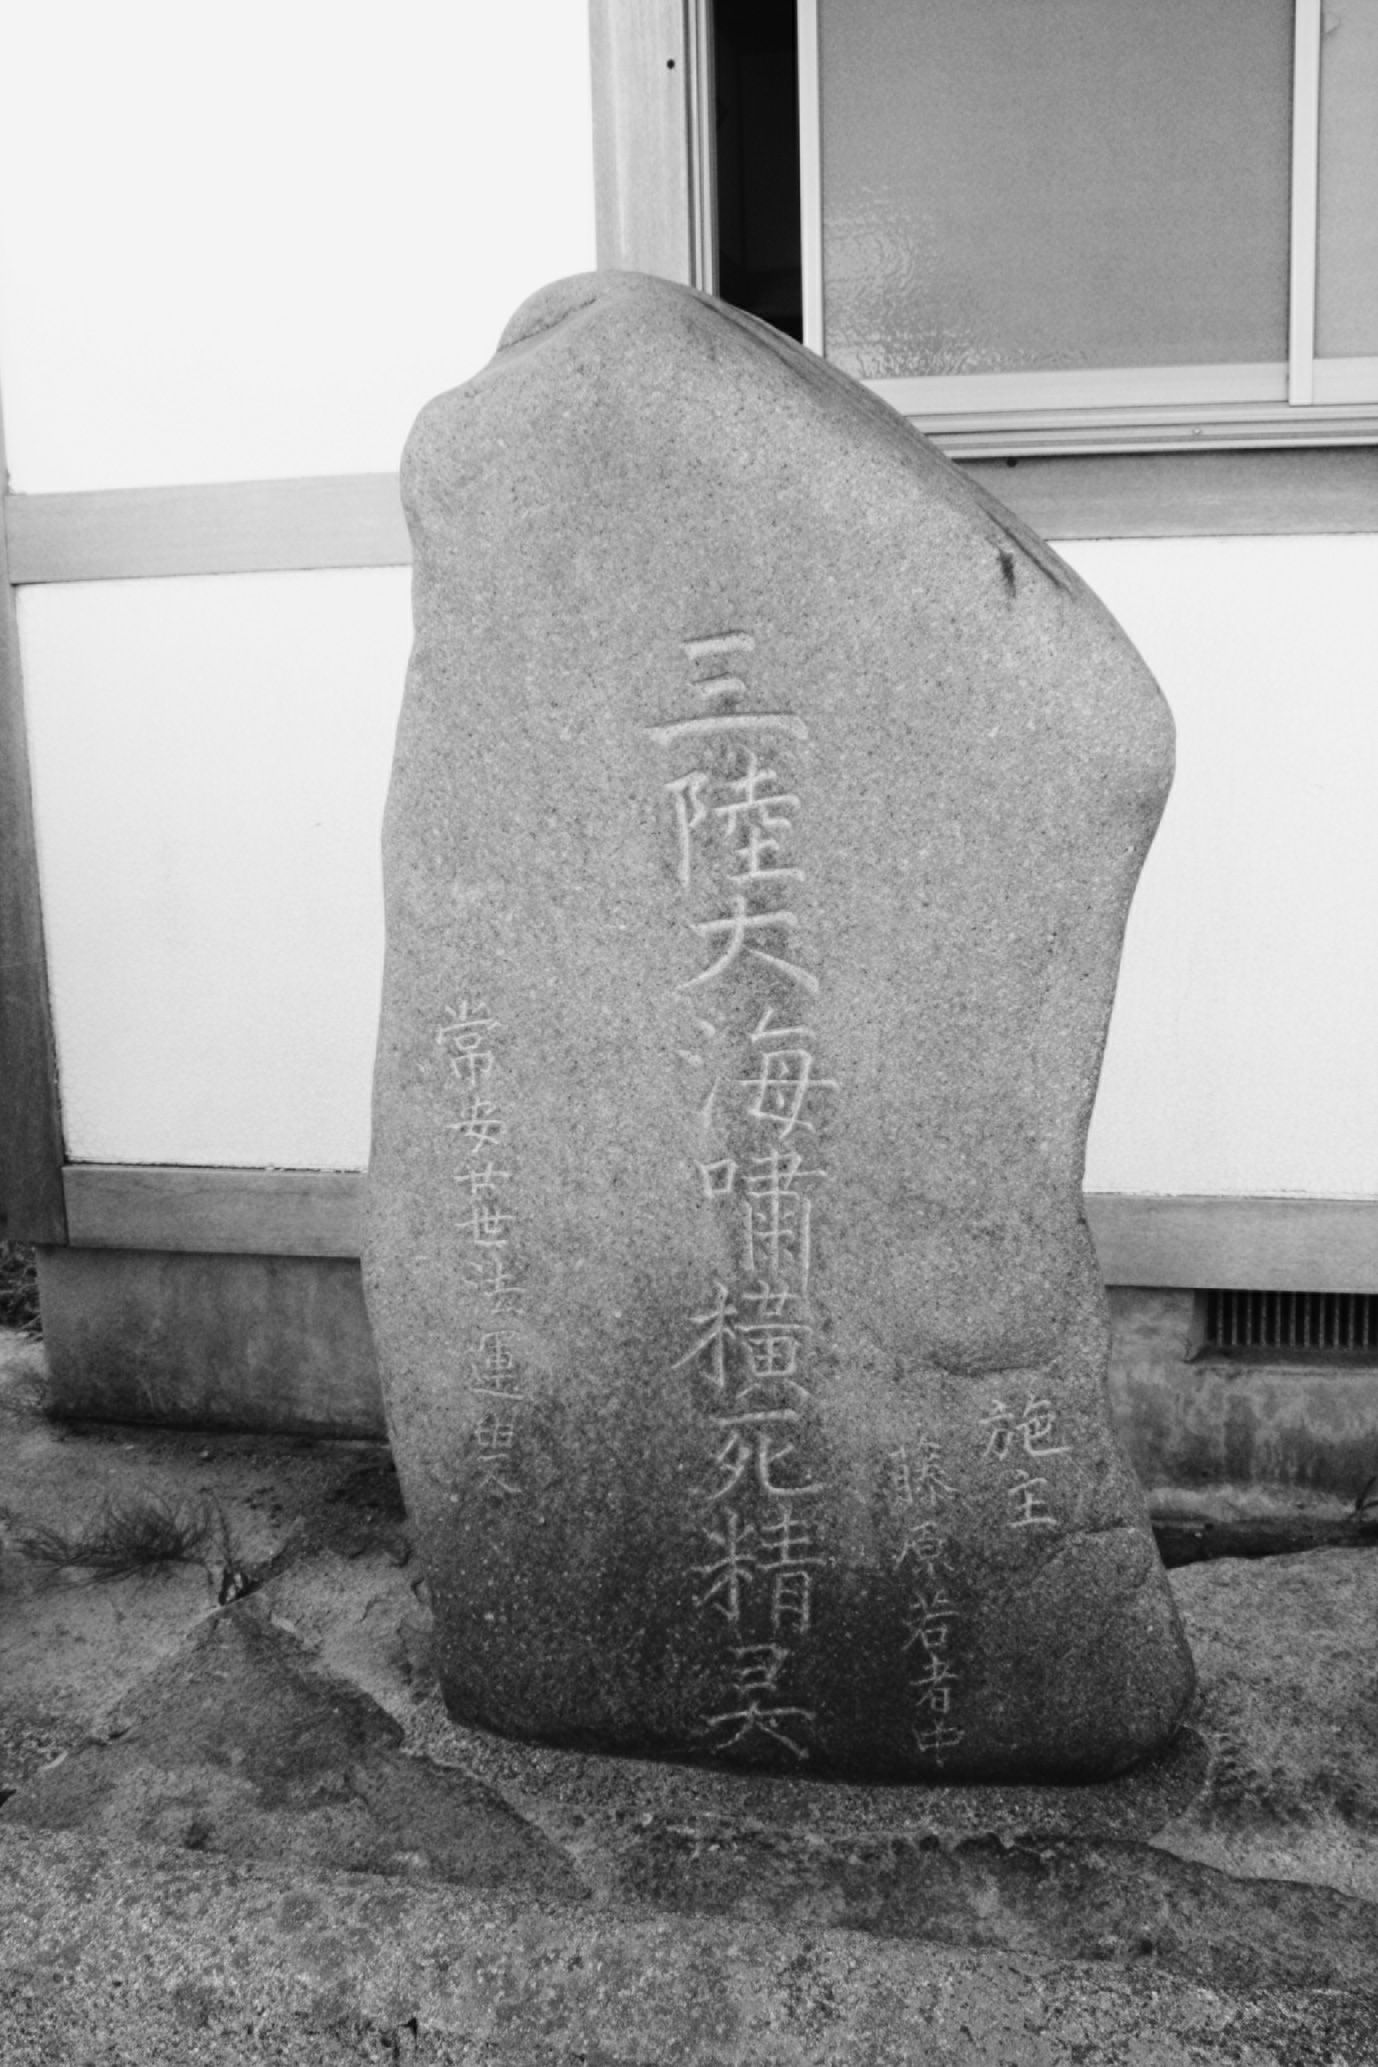 施主
藤原若者中
三陸大海嘯横死精㚑
常安廿世法運叟